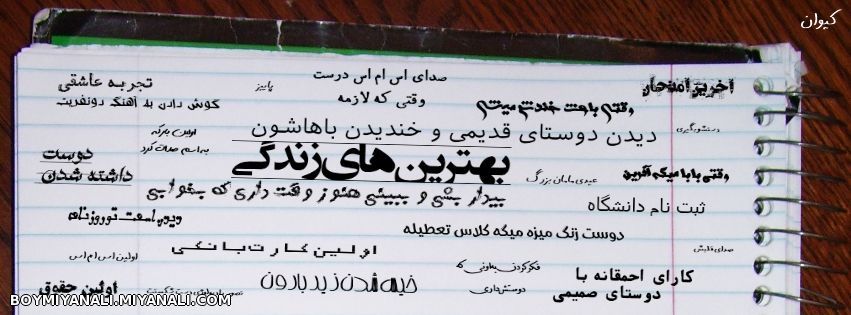 کیوان
صدای اس ام اس درست
وقتی که لازمه
پاییز
تجربه عاشقی
گوش دادن به آهنگ دونفریت
آخرین امتحان
وقتی باعث خندش میشم
دیدن دوستای قدیمی و خندیدن باهاشون
دستشو بگیری
اولین بار که
به اسم صدات کرد
بهترین های زندگی
دوست
داشته شدن
وقتی بابا میگه آفرین
عیدی مامان بزرگ
بیدار بشی و ببینی هنوز وقت داری که بخوابی
ثبت نام دانشگاه
دوست زنگ میزه میگه کلاس تعطیله
صدای قلبش
اولین کارت بانکی
اولین اس ام اس
کارای احمقانه با
دوستای صمیمی
فکر کردن به اونی که
دوستش داری
خیس شدن زیر بارون
اولین حقوق
BOYMIYANALI.MIYANALI.COM